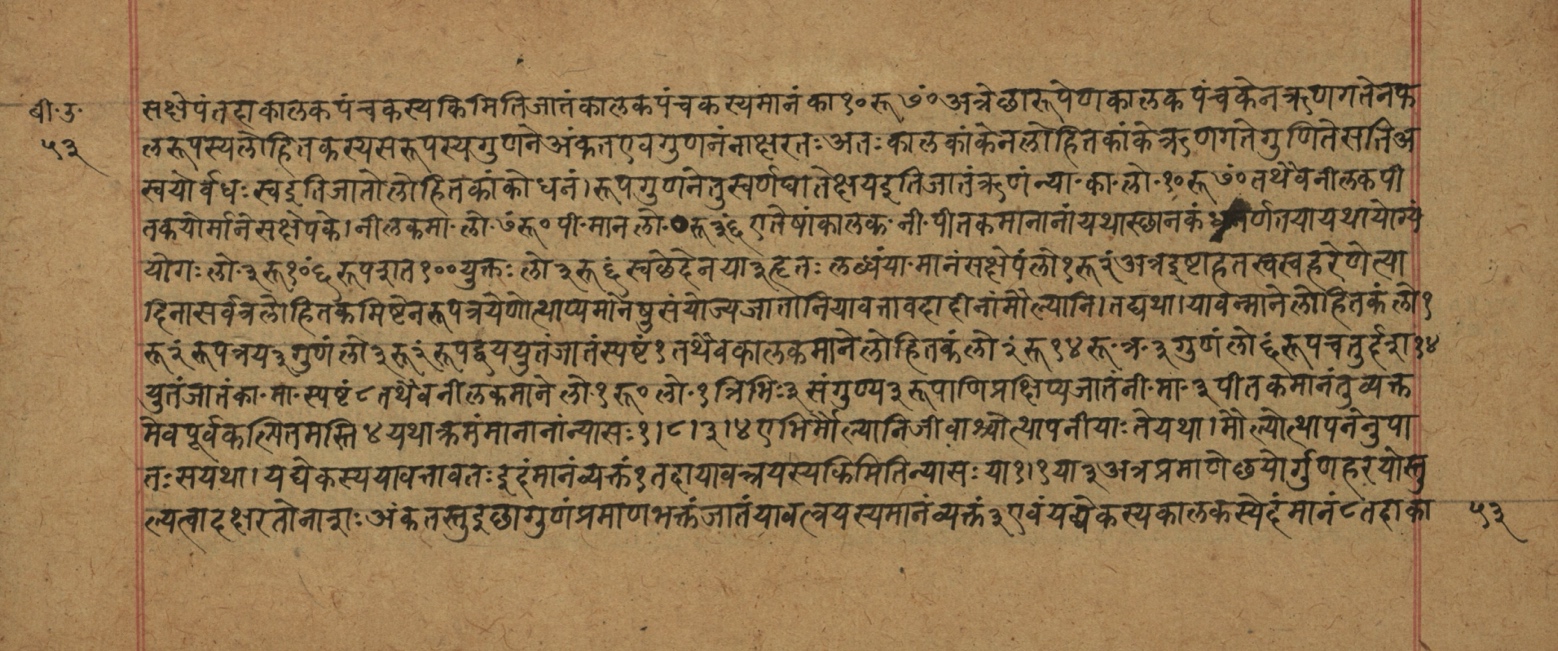 बी॰उ॰
५३
सक्षेपंतदाकालकपंचकस्यकिमितिजातंकालकपंचकस्यमानंका१०रू७ं०अत्रेछारूपेणकालकपंचकेनऋणगतेनफ
लरूपस्यलोहितकस्यसरूपस्यगुणनेअंकतएवगुणनंनाक्षरतःअतःकालकांकेनलोहितकांकेऋणगतेगुणितेसतिअ
स्वयोर्वधःस्वइतिजातोलोहितकांकोधनं।रूपगुणनेतुस्वर्णघातेक्षयइतिजातंऋणंन्या॰का॰लो॰१०रू७ं०तथैवनीलकपी
तकयोर्मानेसक्षेपके।नीलकमा॰लो॰७ंरू०पी॰मानलो॰०रू३ं६एतेषांकालक॰नी॰पीतकमानानांयथास्छानकंधनर्णतयायथायोग्यं
योगःलो॰३रू१०ं६रूपशत१००युक्तःलो३रू६ंस्वछेदेनया३हृतःलब्धंया॰मानंसक्षेपंलो१रू२ंअत्रदृष्टाहतस्वस्वहरेणेत्या
दिनासर्वत्रलोहितकमिष्टेनरूपत्रयेणोत्थाप्यमानेषुसंयोज्यजातानियावत्तावदादीनांमौल्यानि।तद्यथा।यावन्मानेलोहितकंलो१
रू२ंरूपत्रय३गुणंलो३रू२ंरूपद्वययुतंजातंस्पष्टं१तथैवकालकमानेलोहितकंलो२ंरू१४रू॰त्र॰३गुणंलो६ंरूपचतुर्दश१४
युतंजातंका॰मा॰स्पष्टं८तथैवनीलकमानेलो१रू०लो॰१त्रिभिः३संगुण्य३रूपाणिप्रक्षिप्यजातंनी॰मा॰३पीतकमानंतुव्यक्त
मेवपूर्वकल्पितमस्ति४यथाक्रमंमानानांन्यासः१।८।३।४एभिर्मौल्यानिजीवाश्चोत्थापनीयाःतेयथा।मौल्योत्थापनेनुपा
तःसयथा।यद्येकस्ययावत्तावतःइदंमानंव्यक्तं१तदायावत्त्रयस्यकिमितिन्यासःया१।१या३अत्रप्रमाणेछयोर्गुणहरयोस्तु
ल्यत्वादक्षरतोनाशःअंकतस्तुइछागुणंप्रमाणभक्तंजातंयावत्त्रयस्यमानंव्यक्तं३एवंयद्येकस्यकालकस्येदंमानं८तदाका
५३